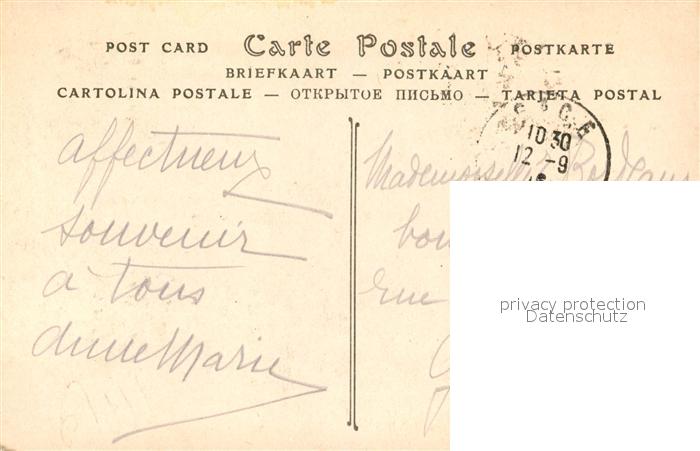 POST CARD Carte Postale POSTKARTE
BRIEFKAART — POSTKAART
CARTOLINA POSTALE — ОТКРЫТОЕ ПИСЬМО — TARJETA POSTAL
10 30
12 - 9
affectueux
souvenir
à tous
Anne Marie
Mademoiselle
rue
privacy protection
Datenschutz